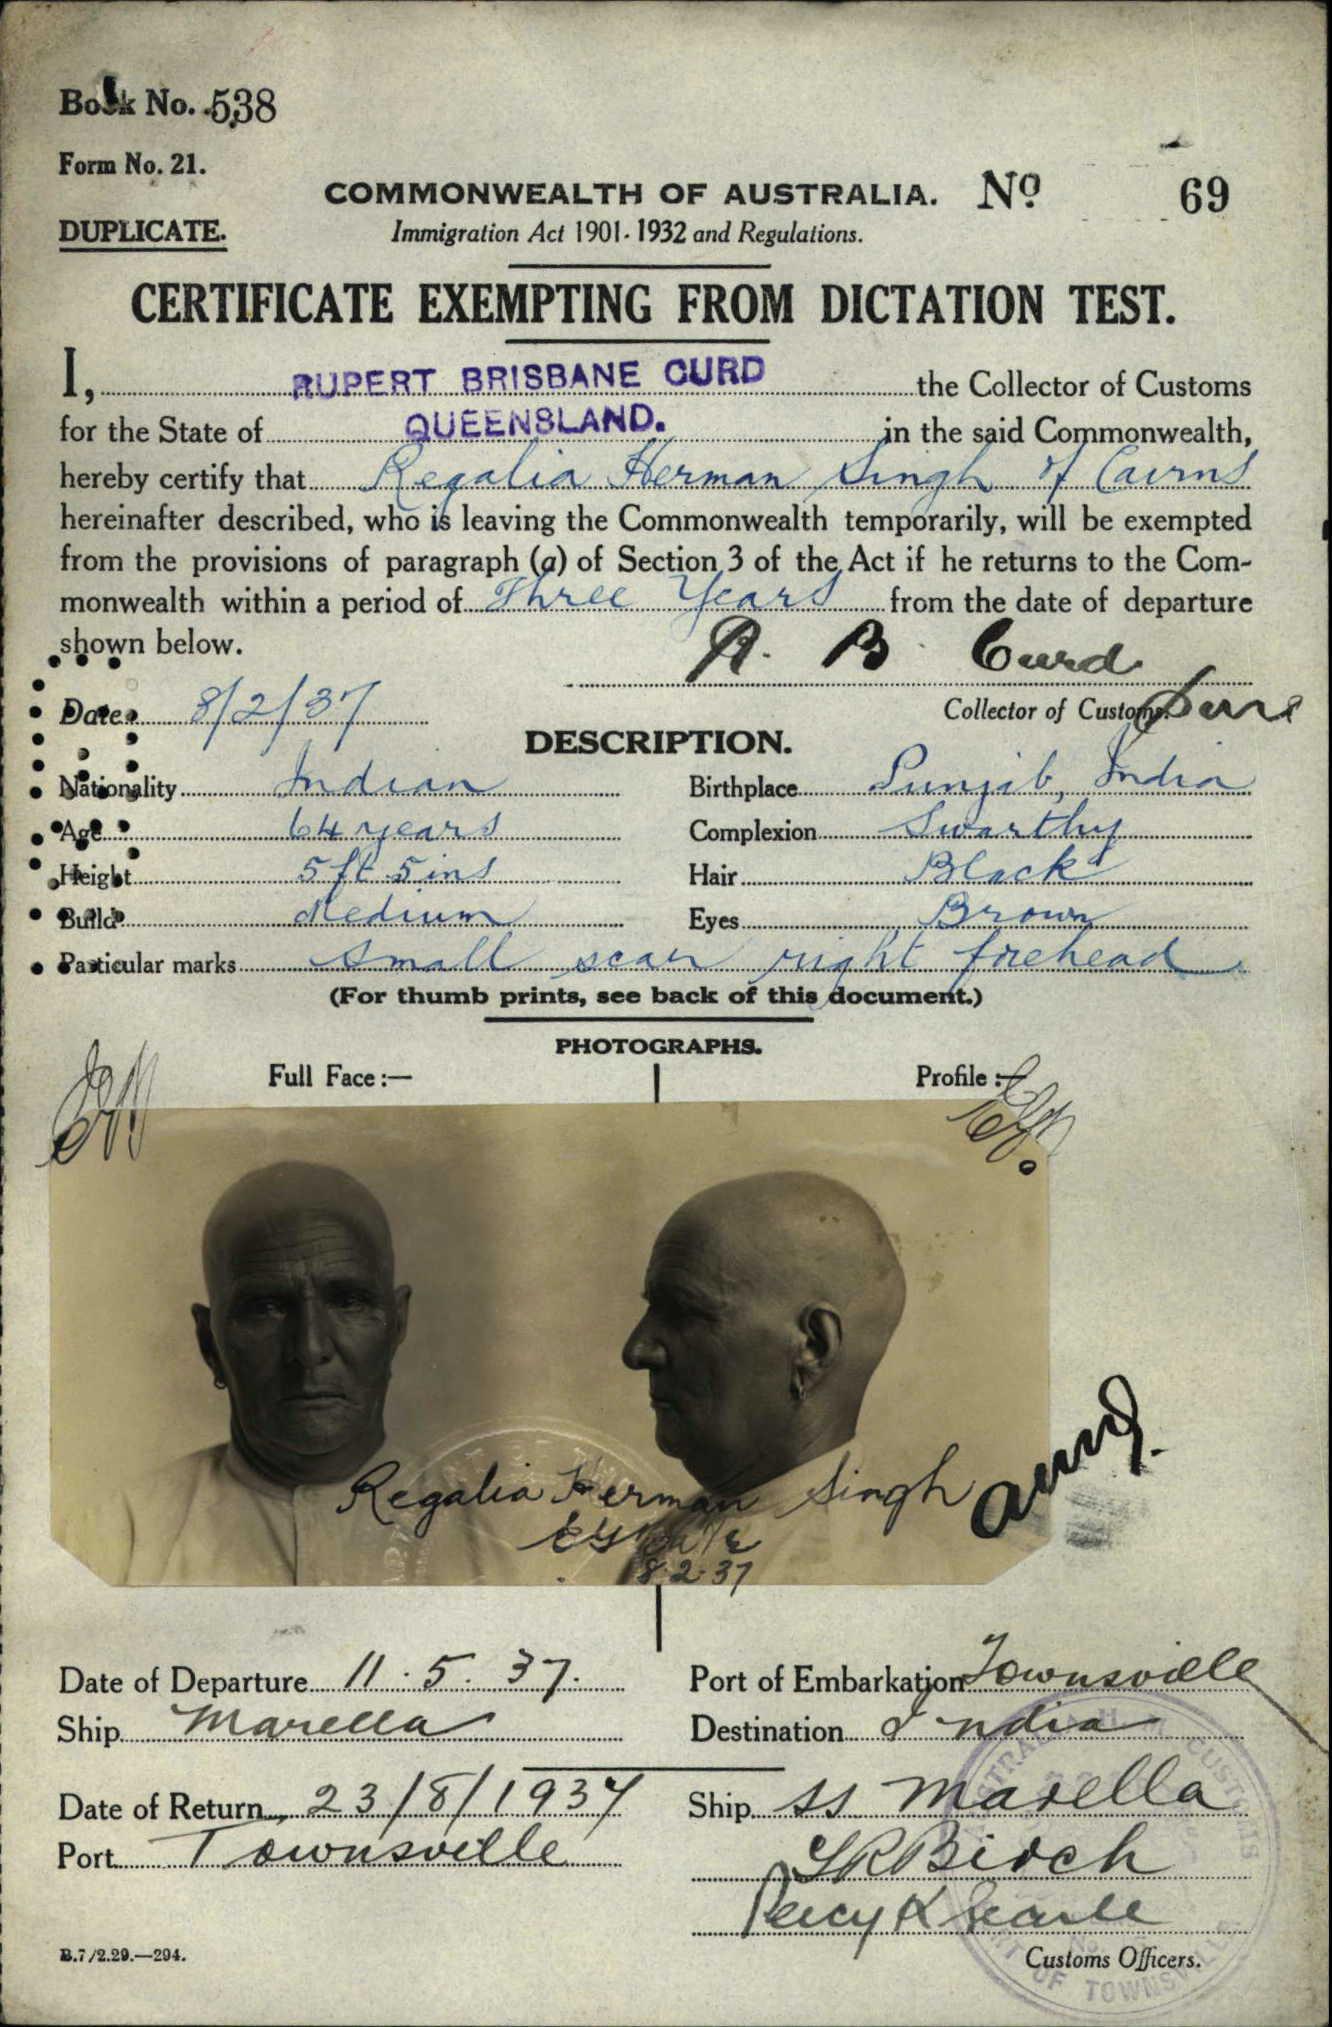 Book No. 538
Form No. 21.
DUPLICATE.
COMMONWEALTH OF AUSTRALIA. No 69
Immigration Act 1901-1932 and Regulations.
CERTIFICATE EXEMPTING FROM DICTATION TEST.
I, RUPERT BRISBANE CURD the Collector of Customs
for the State of QUEENSLAND. in the said Commonwealth,
hereby certify that Regalia Herman Singh of Cairns
hereinafter described, who is leaving the Commonwealth temporarily, will be exempted
from the provisions of paragraph (a) of Section 3 of the Act if he returns to the Com-
monwealth within a period of Three Years from the date of departure
shown below.
R. B. Curd
Date 8/2/37
Collector of Customs.
DESCRIPTION.
Nationality Indian Birthplace Punjab, India
Age 64 years Complexion Swarthy
Height 5 ft 5 ins Hair Black
Build Medium Eyes Brown
Particular marks Small scar right forehead
(For thumb prints, see back of this document.)
PHOTOGRAPHS.
Full Face:— Profile:—
Regalia Herman Singh
8.2.37
Date of Departure 11.5.37. Port of Embarkation Townsville
Ship Marella Destination India
Date of Return 23/8/1937 Ship ss Marella
Port Townsville
Birch
Percy K Searle
Customs Officers.
B.7/2.29.—294.